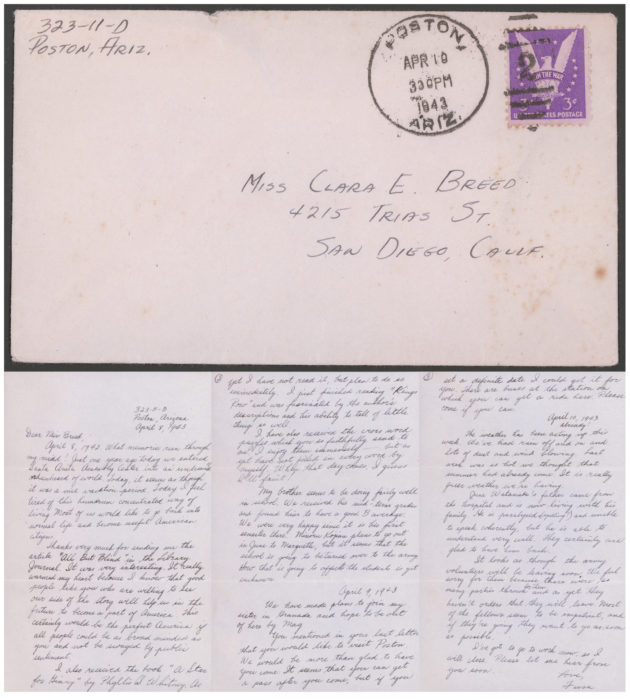 323-11-D
POSTON, ARIZ.
POSTON,
APR 10
330PM
1943
ARIZ.
2
WIN THE WAR
3¢
UNITED STATES POSTAGE
MISS CLARA E. BREED
4215 TRIAS ST.
SAN DIEGO, CALIF.
323-11-D
Poston, Arizona
April 8, 1943
Dear Miss Breed,
April 8, 1942. What memories run through
my mind! Just one year ago today we entered
Santa Anita Assembly Center into an
world. Today it seems as though
it was a mid way. Today I feel
tired of this concentrated way of
living. Most of us would like to go back into
normal life and become useful American
Thanks very much for sending me the
article "All But Blind" in the Library
Journal. It was very interesting. It really
warmed my heart because I know that good
people like you who are willing to see
our side of the story will help us in the
future to become a part of America. That
certainly would be the perfect America if
all people could be as broad minded as
you and not be swayed by public
sentiment.
I also received the book "A Star
for Ginny" by Phyllis A. Whitney. As
yet I have not read it, but plan to do so
immediately. I just finished reading "Kings
Row" and was fascinated by the author's
descriptions and his ability to tell of little
things so well.
I have also received the cross word
puzzles which you so faithfully send to
us. I enjoy them immensely but as
yet have not filled in every word by
myself. When that day comes, I guess
I'll faint!
My brother seems to be doing fairly well
in school. We received his mid-term grades
and found him to have a good B average.
We were very happy since it is his first
semester there. Kogan plans to go out
in June to Marquette, but it seems that the
school is going to be turned over to the army
how that is going to affect the students is yet
unknown.
April 9, 1943
We have made plans to join my
sister in Granada and hope to be out
of here by May.
You mentioned in your last letter
that you would like to visit Poston.
We would be more than glad to have
you come. It seems that you can get
a pass after you come, but if you
set a definite date I could get it for
you. There are buses at the station on
which you can get a ride here. Please
come if you can.
April 10, 1943
already
The weather has been acting up this
week. We've had rain off and on and
lots of dust and wind blowing. Last
week was so hot we thought that
summer had already come. It is really
queer weather we're having.
Jure Watanabe's father came from
the hospital and is now living with his
family. He is paralyzed (partly) and unable
to speak coherently but he is able to
understand very well. They certainly are
glad to have him back.
It looks as though the army
volunteers will be leaving soon. I feel
sorry for them because there were so
many parties and as yet they
haven't orders that they will leave. Most
of the fellows seem to be impatient, and
if they're going they want to go as soon
as possible.
I've got to go to work now, so I
will close. Please let me hear from
you soon.
Love,